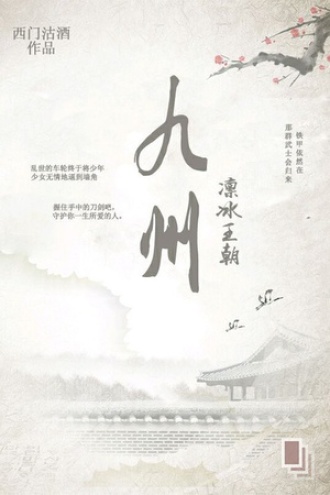 西门沽酒
作品
九州
凛冰王朝
铁甲依然在
那群武士会归来
乱世的车轮终于将少年
少女无情地逼到墙角
握住手中的刀剑吧，
守护你一生所爱的人。